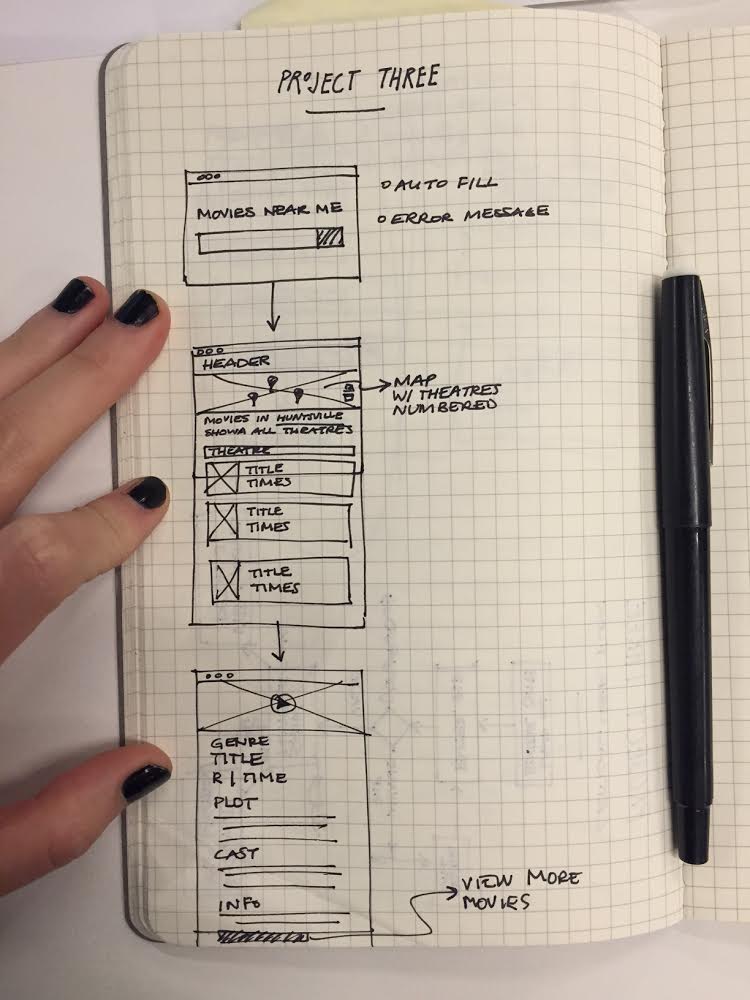 PROJECT THREE
MOVIES NEAR ME
O AUTO FILL
O ERROR MESSAGE
HEADER
MAP
W/ THEATRES
NUMBERED
MOVIES IN HUNTSVILLE
SHOWN ALL THEATRES
THEATRE
TITLE
TIMES
TITLE
TIMES
TITLE
TIMES
GENRE
TITLE
R | TIME
PLOT
CAST
INFO
VIEW MORE
MOVIES